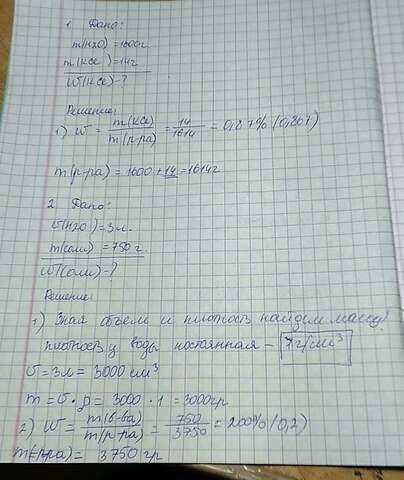 1. Дано:
m(H2O) = 1600г
m(KCl) = 14г
W(KCl) - ?
Решение:
1) W = m(KCl) / m(р-ра) = 14 / 1614 = 0,87% (0,867)
m(р-ра) = 1600 + 14 = 1614г
2 Дано:
υ(H2O) = 3л.
m(соли) = 750г.
W(соли) - ?
Решение:
1) Зная объем и плотность найдем массу!
плотность у воды постоянная – 1г/см³
υ = 3л = 3000 см³
m = υ · p = 3000 · 1 = 3000гр
2) W = m(в-ва) / m(р-ра) = 750 / 3750 = 200% (0,2)
m(р-ра) = 3750 гр